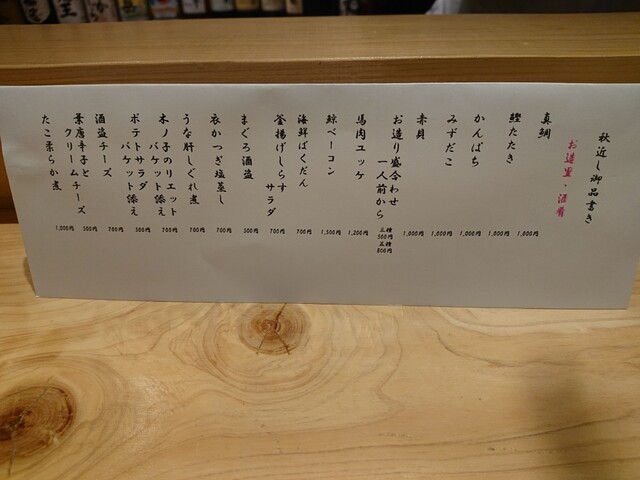 秋近し御品書き
お造里・酒肴
真鯛
1,000円
鰹たたき
1,000円
かんぱち
1,000円
みずだこ
1,000円
赤貝
1,000円
お造り盛合わせ
一人前から
三種
500円
五種
800円
馬肉ユッケ
1,200円
鯨ベーコン
1,500円
海鮮ばくだん
700円
釜揚げしらす
サラダ
700円
まぐろ酒盗
500円
衣かつぎ塩蒸し
700円
うな肝しぐれ煮
700円
木ノ子のリエット
バケット添え
700円
ポテトサラダ
バケット添え
500円
酒盗チーズ
700円
葉唐辛子と
クリームチーズ
500円
たこ柔らか煮
1,000円